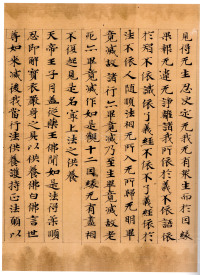 見得无生忍決定无我无有衆生而於因緣
果報无違无諍離諸我所依於義不依語依
於智不依識依了義經不依不了義經依於
法不依人隨順法相无所入无所歸无明畢
竟滅故諸行亦畢竟滅乃至生畢竟滅故老
死亦畢竟滅作如是觀十二因緣无有盡相
不復起見是名最上法之供養
天帝王子月蓋從藥王佛聞如是法得柔順
忍即解寶衣嚴身之具以供養佛白佛言世
尊如來滅後我當行法供養護持正法願以